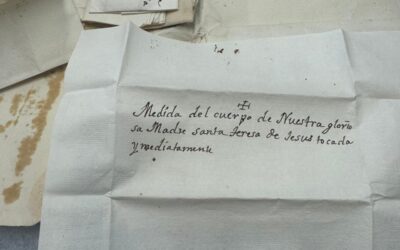 Medida del cuerpo de Nuestra glorio
sa Madre santa teresa de Jesus tocada
ymediatamente